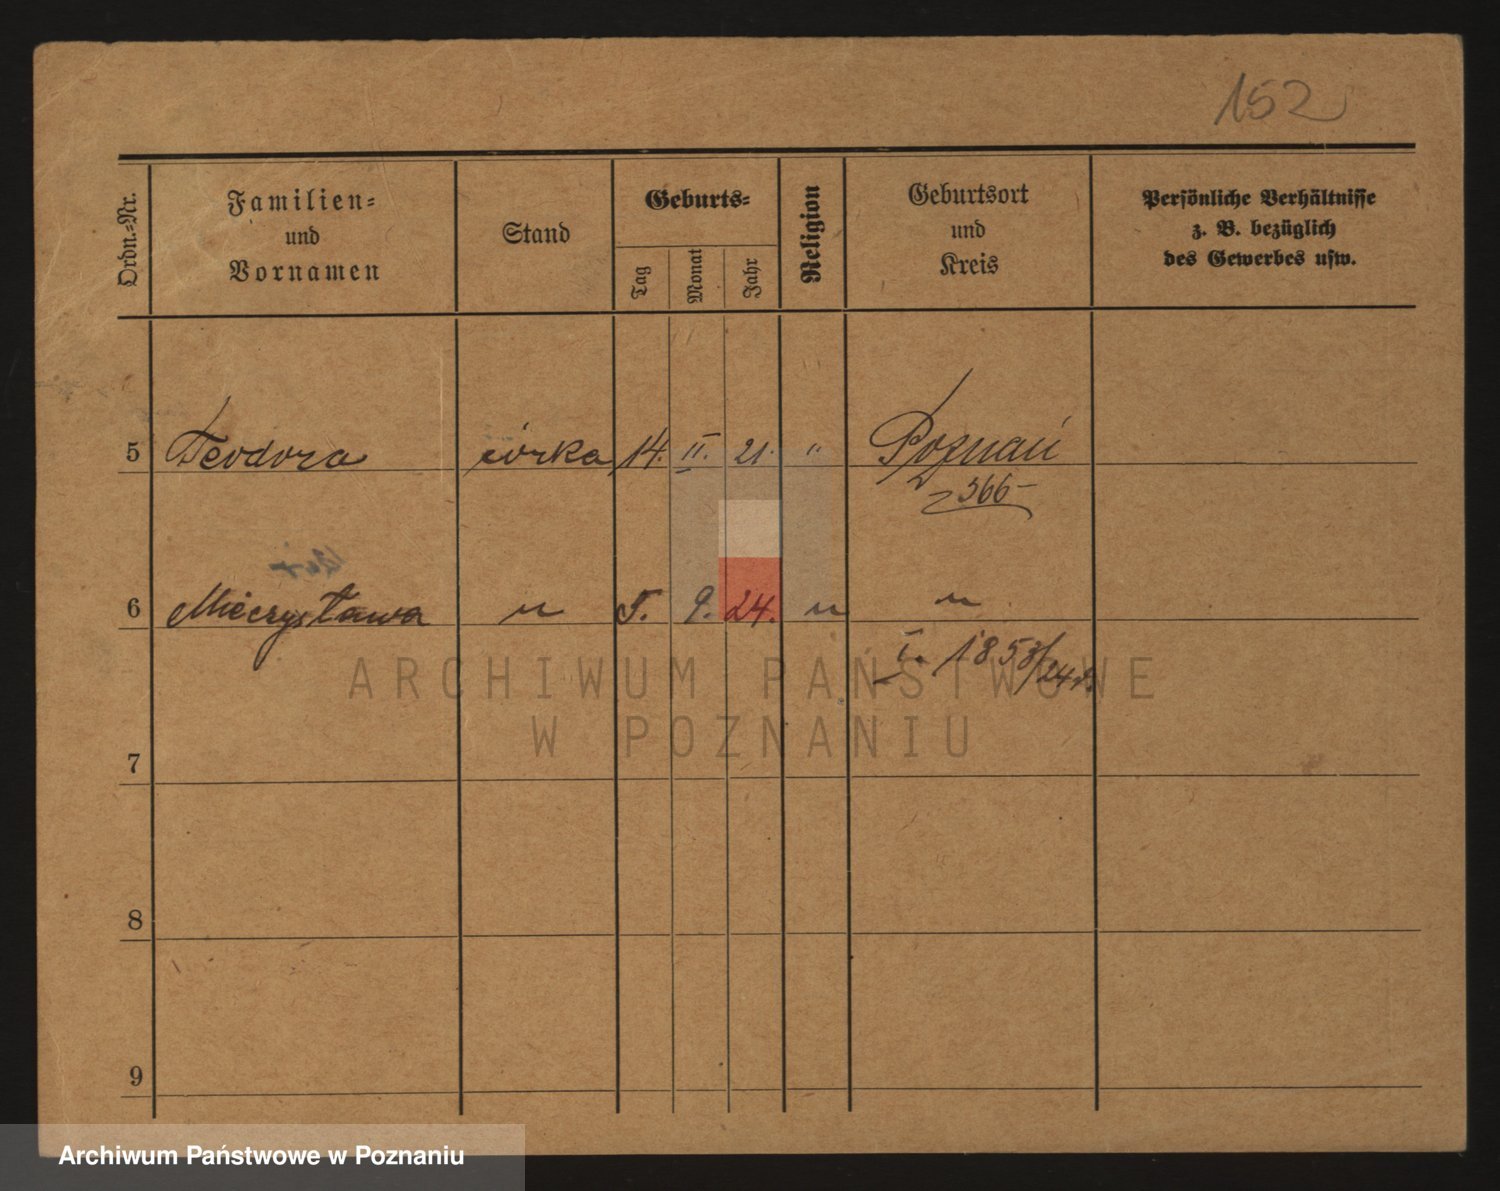 152
Ordn.=Nr.
Familien=
und
Vornamen
Stand
Geburts=
Tag
Monat
Jahr
Religion
Geburtsort
und
Kreis
Persönliche Verhältnisse
z. B. bezüglich
des Gewerbes usw.
5 Teodora córka 14. II. 21. " Poznań
366
6 Mieczysława " 5. 9. 24. " "
I. 1853/24
ARCHIWUM PAŃSTWOWE
W POZNANIU
7
8
9
Archiwum Państwowe w Poznaniu